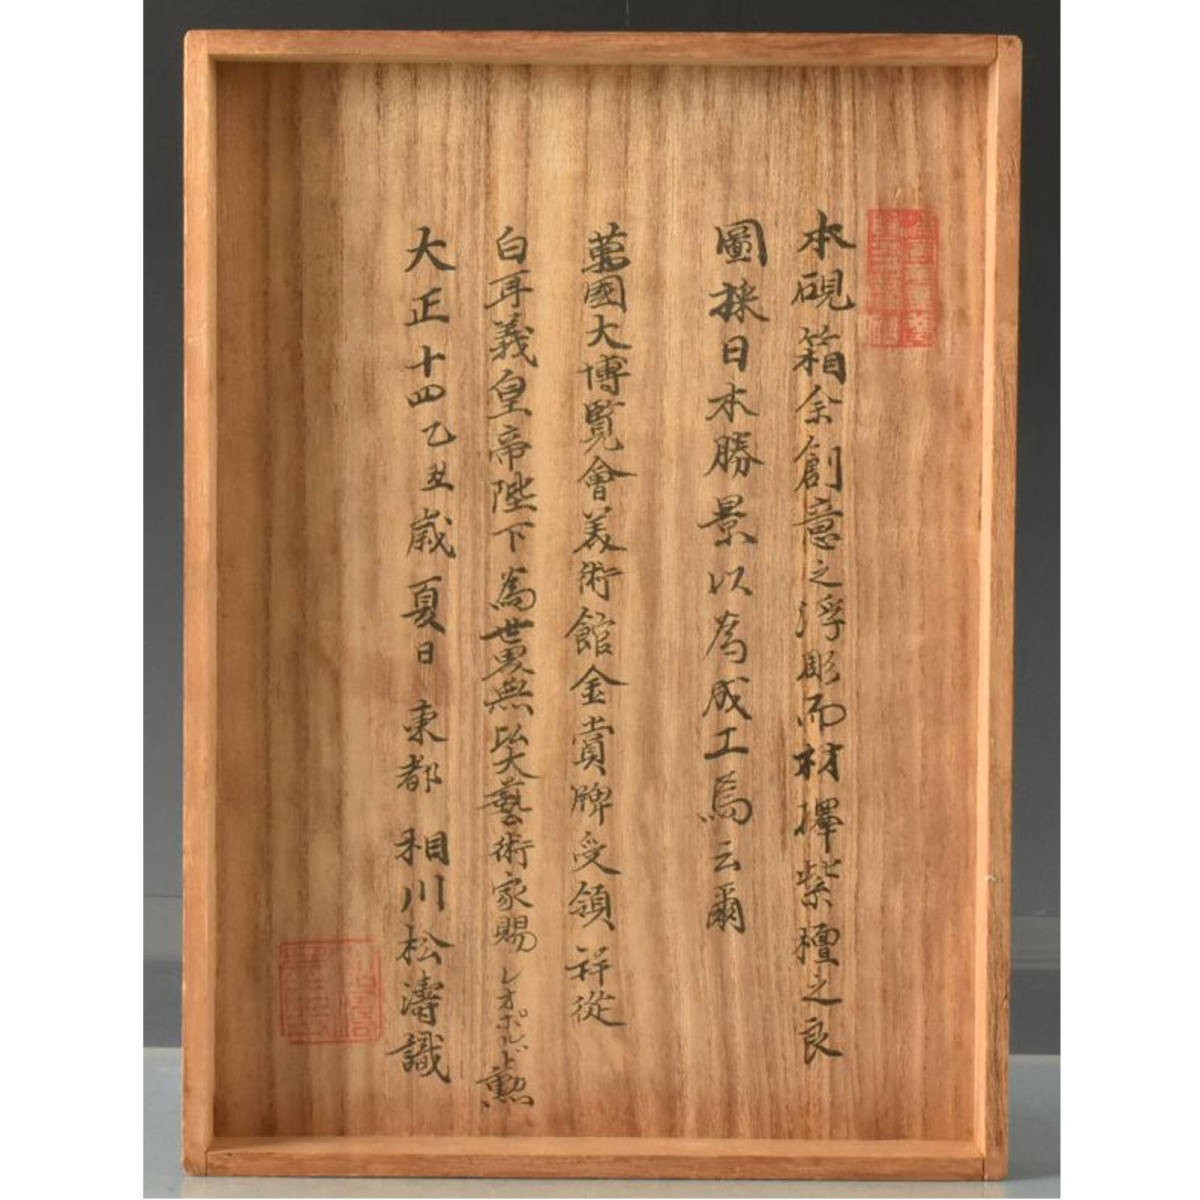 本硯箱余創意之浮彫而材擇紫檀之良
圖採日本勝景以為成工焉云爾
萬國大博覧會美術館金賞牌受領祥從
白耳義皇帝陛下為世界無比大藝術家賜レオポルド勲
大正十四乙丑歳夏日東都相川松濤識